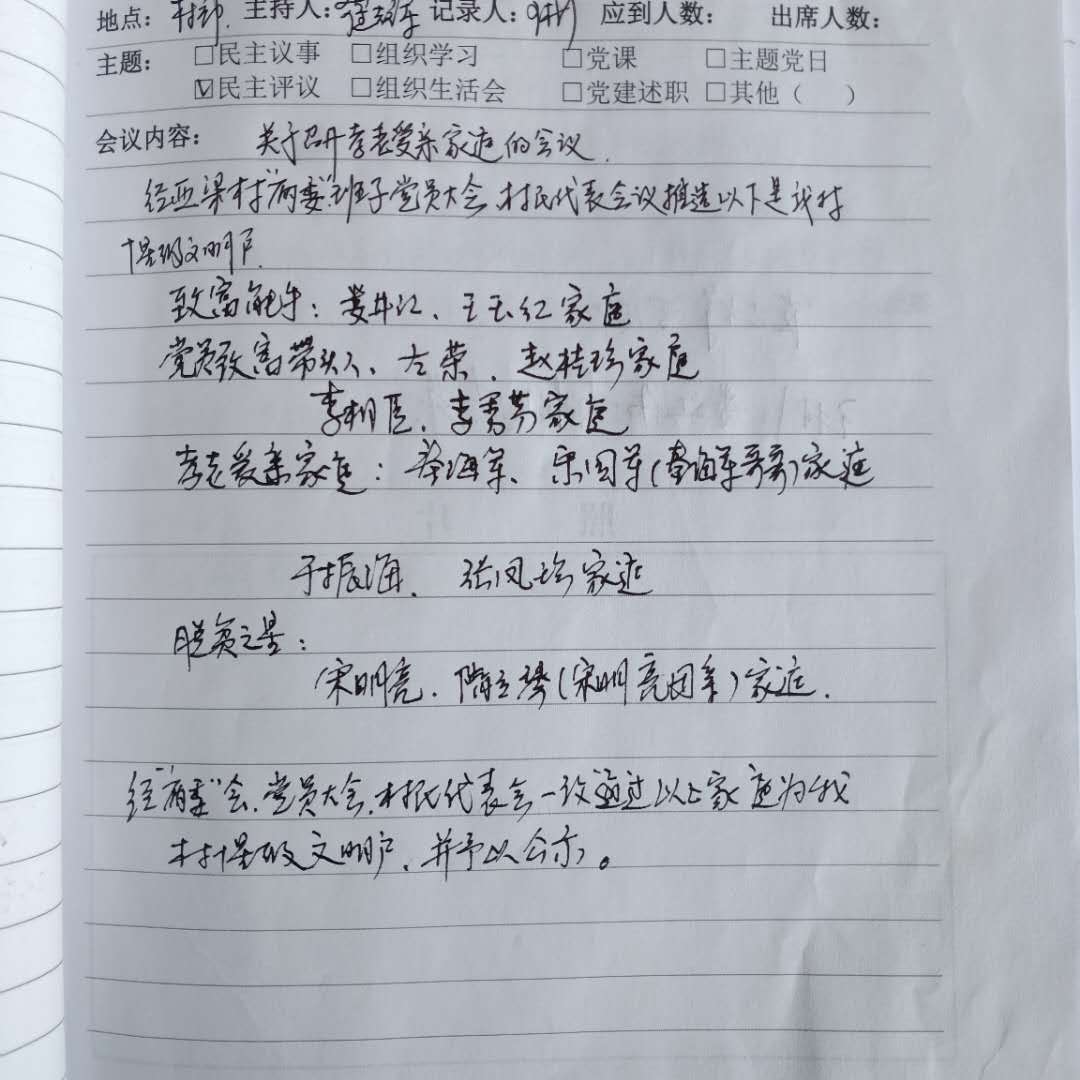 地点：村部 主持人： 记录人： 应到人数： 出席人数：
主题： □民主议事 □组织学习 □党课 □主题党日
☑民主评议 □组织生活会 □党建述职 □其他（ ）
会议内容： 关于召开孝老爱亲家庭的会议.
经西梁村"两委"班子党员大会、村民代表会议推选以下是我村
十星级文明户.
致富能手：姜井江、王玉红家庭
党员致富带头人、左荣、赵桂珍家庭
李相臣、李秀芬家庭
孝老爱亲家庭：秦海军、宋国军(秦海军哥哥)家庭
于振海、张凤珍家庭
脱贫之星：
宋明亮、隋立琴(宋明亮母亲)家庭.
经"两委"会、党员大会、村民代表会一致通过以上家庭为我
村十星级文明户、并予以公示。